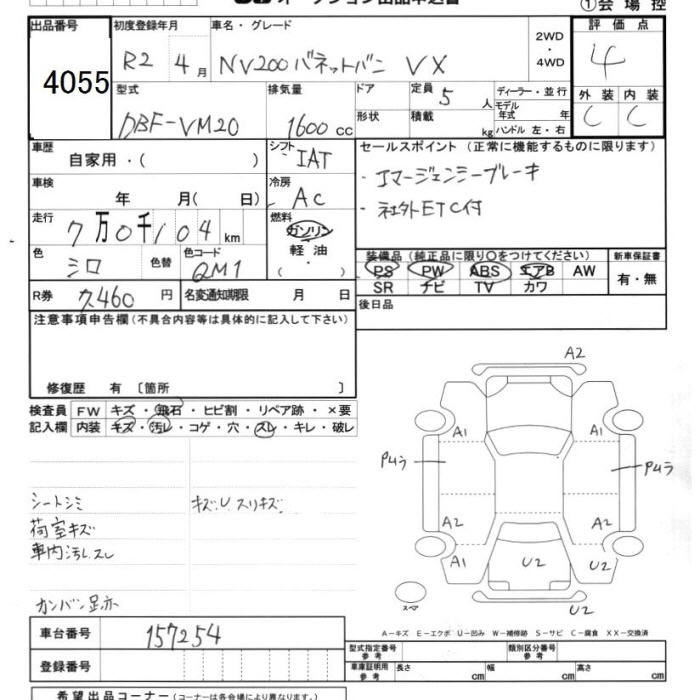 オークション出品申込書 ①会場控
出品番号 初度登録年月 車名・グレード 2WD・4WD 評価点
4055 R2 4月 NV200バネットバン VX 4
型式 排気量 ドア 定員 5人 ディーラー・並行 外装 内装
DBF-VM20 1600cc 形状 積載 kg モデル年式 年 C C
ハンドル 左・右
車歴 自家用・( ) シフト IAT セールスポイント (正常に機能するものに限ります)
車検 年 月(日) 冷房 AC ・エマージェンシーブレーキ
走行 7万0千104km 燃料 ガソリン・軽油・( ) ・社外ETC付
色 シロ 色替 色コード QM1 装備品 (純正品に限り○をつけてください) 新車保証書
PS PW ABS エアB AW 有・無
SR ナビ TV カワ
R券 7460円 名変通知期限 月 日 後日品
注意事項申告欄(不具合内容等は具体的に記入して下さい)
修復歴 有 〔箇所 〕
検査員記入欄 FW キズ・飛石・ヒビ割・リペア跡・×要
内装 キズ・汚レ・コゲ・穴・スレ・キレ・破レ
シートシミ キズU スリキズ
荷室キズ
車内汚レスレ
カンバン跡
A2
A1 A1
P4ラ P4ラ
A2 A2
A1 U2 U2
スペア U2
A-キズ E-エクボ U-凹み W-補修跡 S-サビ C-腐食 XX-交換済
車台番号 157254
型式指定番号 参考 類別区分番号 参考
登録番号 車庫証明用 参考 長さ cm 幅 cm 高さ cm
希望出品コーナー(コーナーは各会場により異なります。)